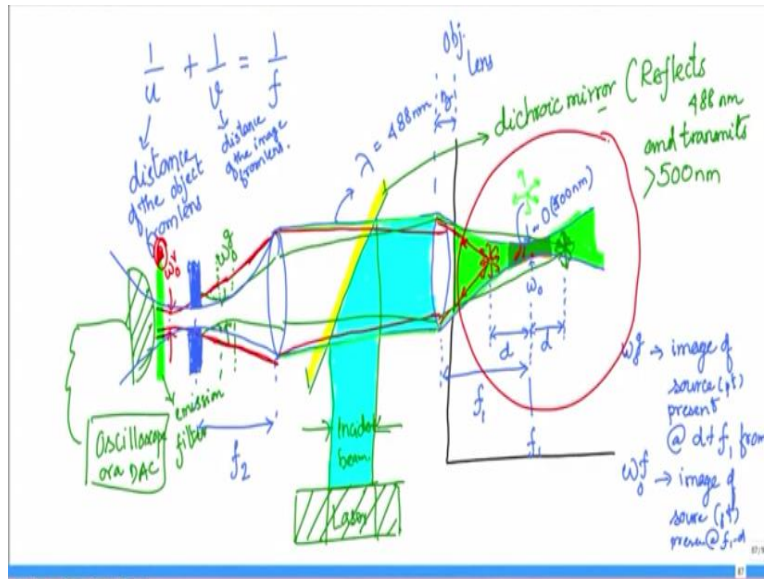 1/u + 1/v = 1/f
distance
of the object
from lens
distance
of the image
from lens.
λ = 488nm
Obj.
lens
dichroic mirror (Reflects
488 nm
and transmits
>500nm
~O(500nm)
ω₀
d
d
f₁
f₁
f₂
emission
filter
Oscilloscope
or a DAC
Incident
beam
Laser
→ image of
source (pt)
present
@ d+f₁ from
→ image of
source (pt)
present @ f₁-d
87